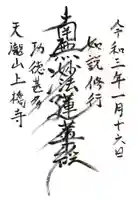 令和三年一月十六日
如説修行
南無妙法蓮華經
功徳甚多
天瀧山上行寺